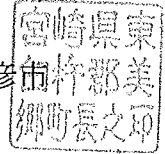 修市
宮崎県東
臼杵郡美
郷町長之印